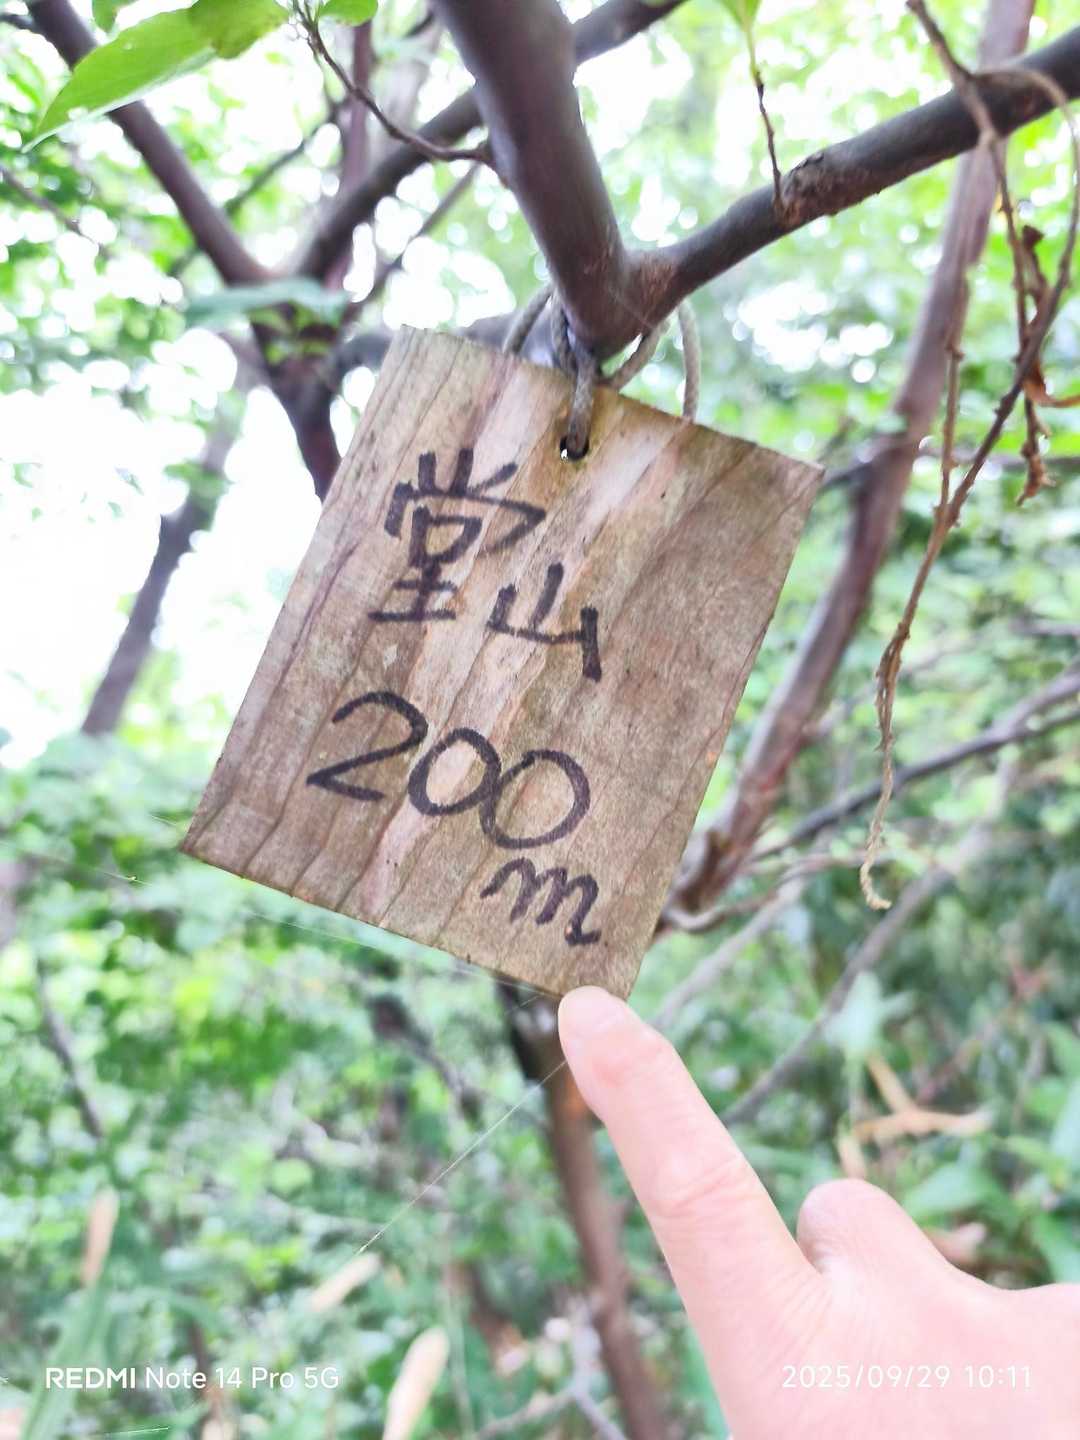 堂山
200
m
REDMI Note 14 Pro 5G
2025/09/29 10:11